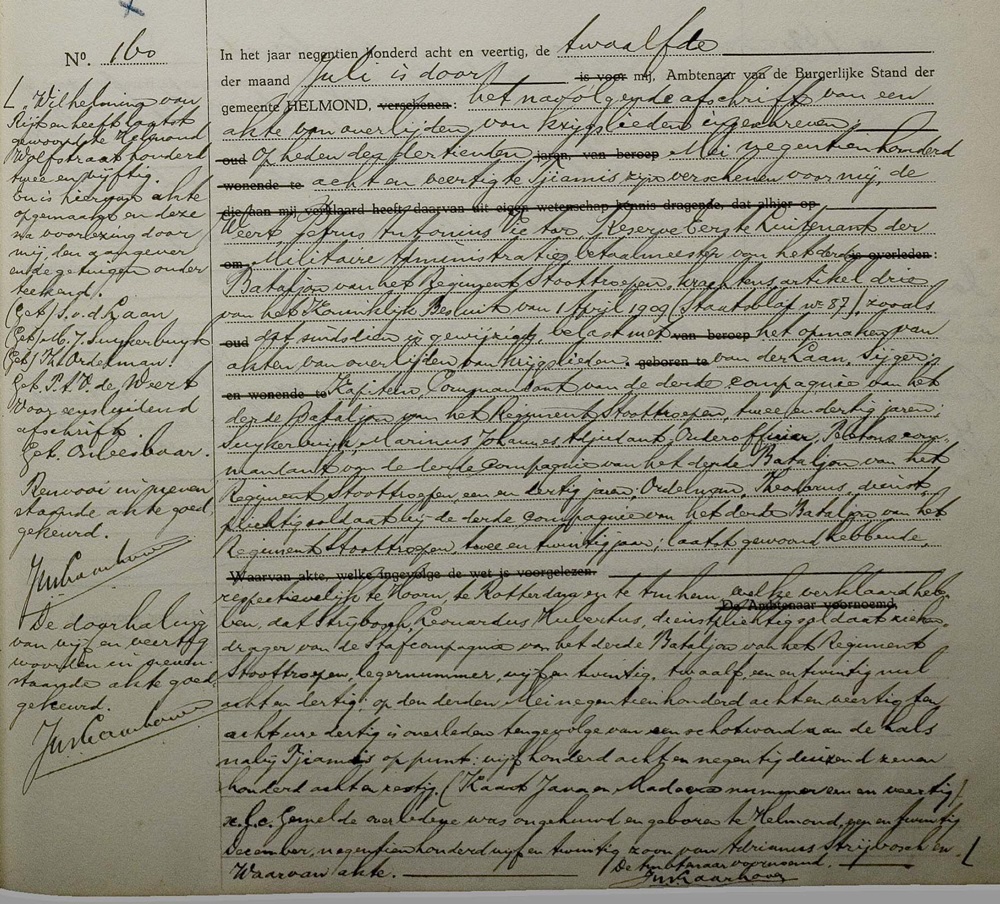 No. 160
In het jaar negentien honderd acht en veertig, de twaalfde
der maand Juli is door is voor mij, Ambtenaar van de Burgerlijke Stand der
gemeente HELMOND, verschenen: het navolgende afschrift van een
akte van overlijden van krijgslieden ingeschreven:
oud Op heden den dertienden jaren, van beroep Mei negentienhonderd
wonende te acht en veertig te Tjiamis zijn verschenen voor mij, de
die aan mij verklaard heeft daarvan uit eigen wetenschap kennis dragende, dat alhier op
Weert Petrus Antonius Victor, Reserve eerste Luitenant der
om Militaire Administratie, betaalmeester van het derde is overleden:
Bataljon van het Regiment Stoottroepen, krachtens artikel drie
van het Koninklijk Besluit van 1 April 1909 (Staatsblad nr 87), zoals
oud dat sindsdien is gewijzigd, belast met van beroep het opmaken van
akten van overlijden van krijgslieden. geboren te van der Laan, Sijger,
en wonende te Kapitein, Commandant van de derde compagnie van het
derde Bataljon van het Regiment Stoottroepen, twee en dertig jaren;
Suijkerbuijk, Marinus Johannes Adjudant, Onderofficier, Pelotons com-
mandant van de derde Compagnie van het derde Bataljon van het
Regiment Stoottroepen, een en dertig jaren; Ordelman, Theodorus, dienst-
plichtig soldaat bij de derde compagnie van het derde Bataljon van het
Regiment Stoottroepen, twee en twintig jaar; laatst gewoond hebbende,
Waarvan akte, welke ingevolge de wet is voorgelezen.
respectievelijk te Hoorn, te Rotterdam en te Arnhem, welke verklaard heb-
De Ambtenaar voornoemd,
ben, dat Strijbosch, Leonardus Hubertus, dienstplichtig soldaat zieken-
drager van de Stafcompagnie van het derde Bataljon van het Regiment
Stoottroepen, legernummer, vijf en twintig, twaalf, een en twintig nul
acht en dertig; op den derden Mei negentienhonderd acht en veertig ten
acht ure dertig is overleden tengevolge van een schotwond aan de hals
nabij Tjiamis op punt: vijf honderd acht en negentig duizend zeven
honderd acht en zestig. (Kaart Java en Madoera nummer een en veertig
x. G. c. Gemelde overledene was ongehuwd en geboren te Helmond, een en twintig
December, negentienhonderd vijf en twintig zoon van Adrianus Strijbosch en
Waarvan akte.
De Ambtenaar voornoemd.
Wilhelmina van
Rijt en heeft laatst
gewoond te Helmond
Wolfstraat honderd
twee en vijftig.
en is hiervan akte
opgemaakt en deze
na voorlezing door
mij, den aangever
en de getuigen onder-
teekend.
Get/ S.v.d. Laan
Get/ M. J. Suykerbuyk
Get/ Th. Ordelman.
Get. P.A.V. de Weert
Voor eensluidend
afschrift.
Get. Onleesbaar.
Renvooi in neven-
staande akte goed-
gekeurd.
De doorhaling
van vijf en veertig
woorden in neven-
staande akte goed-
gekeurd.